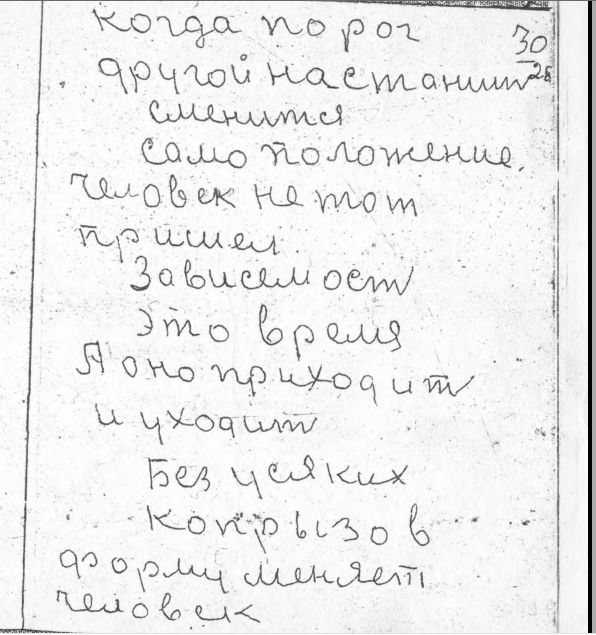 когда порог
30
другой настаниит 28
сменится
само положение.
человек не тот
пришел.
Зависемост
это время
А оно приходит
и уходит
Без усяких
копрызов
форму меняет
человек